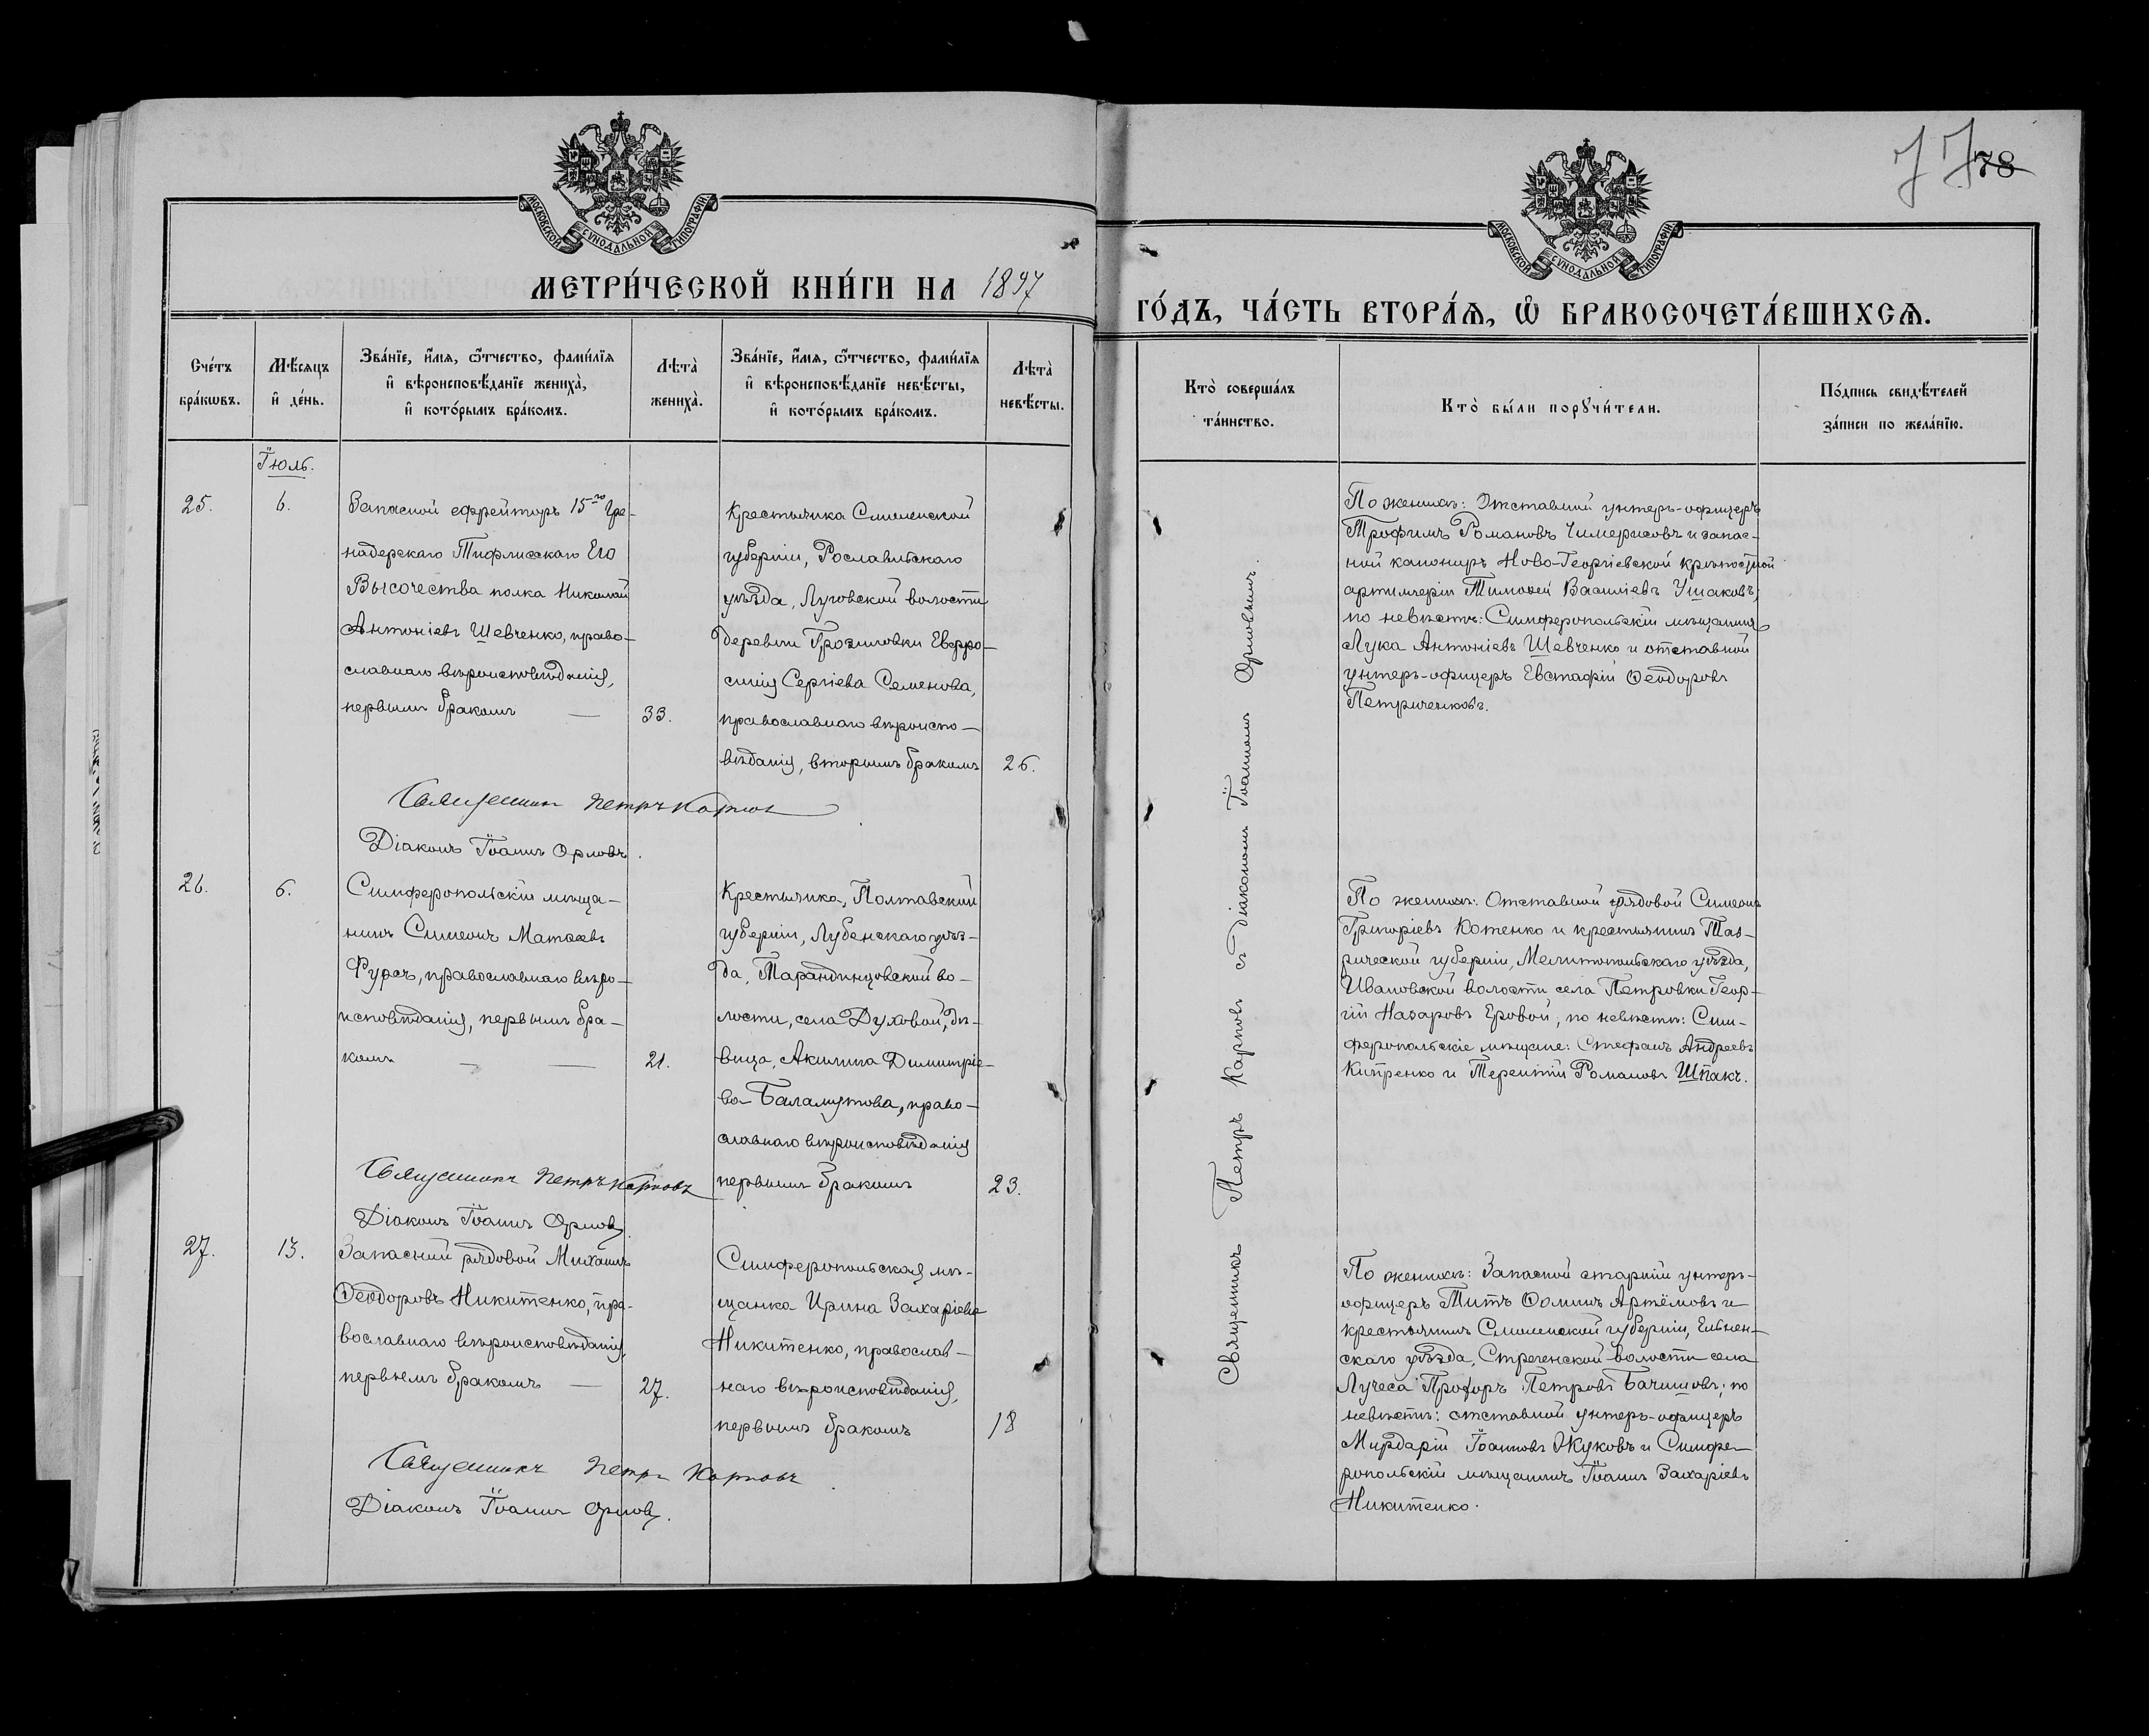 МОСКОВСКОЙ СѴНОДАЛЬНОЙ ТИПОГРАФІИ
МЕТРИ́ЧЕСКОЙ КНИ́ГИ НА 1897
Сче́тъ бра́кѡвъ.
Мѣ́сяцъ и҆ де́нь.
Зва́нїе, и҆́мѧ, ѻ҆́тчество, фами́лїѧ
и҆ вѣроисповѣ́данїе жениха̀,
и҆ кото́рымъ бра́комъ.
Лѣта̀ жениха̀.
Зва́нїе, и҆́мѧ, ѻ҆́тчество, фами́лїѧ
и҆ вѣроисповѣ́данїе невѣ́сты,
и҆ кото́рымъ бра́комъ.
Лѣта̀ невѣ́сты.
Іюль.
25.
6.
Запасной ефрейторъ 15го Гре-
надерскаго Тифлисскаго Его
Высочества полка Николай
Антоніевъ Шевченко, право-
славнаго вѣроисповѣданія,
первымъ бракомъ —
33.
Крестьянка Смоленской
губерніи, Рославльскаго
уѣзда, Луговской волости
деревни Грозиловки Евфро-
синія Сергіева Семенова,
православнаго вѣроиспо-
вѣданія, вторымъ бракомъ
26.
Священникъ Петръ Карповъ
Діаконъ Іоаннъ Орловъ.
26.
6.
Симферопольскій мѣща-
нинъ Симеонъ Матѳеевъ
Фурсъ, православнаго вѣро-
исповѣданія, первымъ бра-
комъ — —
21.
Крестьянка, Полтавской
губерніи, Лубенскаго уѣз-
да, Тарандинцовской во-
лости, села Духовой, дѣ-
вица, Акилина Димитріе-
ва Баламутова, право-
славнаго вѣроисповѣданія
первымъ бракомъ
23.
Священникъ Петръ Карповъ
Діаконъ Іоаннъ Орловъ
27.
13.
Запасный рядовой Михаилъ
Ѳеодоровъ Никитенко, пра-
вославнаго вѣроисповѣданія,
первымъ бракомъ —
27.
Симферопольская мѣ-
щанка Ирина Захаріева
Никитенко, православ-
наго вѣроисповѣданія,
первымъ бракомъ
18
Священникъ Петръ Карповъ
Діаконъ Іоаннъ Орловъ.
77
78
МОСКОВСКОЙ СѴНОДАЛЬНОЙ ТИПОГРАФІИ
ГО́ДЪ, ЧА́СТЬ ВТОРА́Ѧ, Ѡ҆ БРАКОСОЧЕТА́ВШИХСѦ.
Кто̀ соверша́лъ
та́инство.
Кто̀ бы́ли порꙋчи́тели.
По́дпись свидѣ́телей
за́писи по жела́нїю.
Священникъ Петръ Карповъ съ Діакономъ Іоанномъ Орловымъ.
По женихѣ: Отставной унтеръ-офицеръ
Трофимъ Романовъ Чимерисовъ и запас-
ной канониръ Ново-Георгіевской крѣпостной
артиллеріи Тимоѳей Василіевъ Ушаковъ;
по невѣстѣ: Симферопольскій мѣщанинъ
Лука Антоніевъ Шевченко и отставной
унтеръ-офицеръ Евстафій Ѳеодоровъ
Петриченковъ.
По женихѣ: Отставной рядовой Симеонъ
Григоріевъ Котенко и крестьянинъ Тав-
рической губерніи, Мелитопольскаго уѣзда,
Ивановской волости села Петровки Геор-
гій Назаровъ Еровой; по невѣстѣ: Сим-
феропольскіе мѣщане: Стефанъ Андреевъ
Кипренко и Терентій Романовъ Шпакъ.
По женихѣ: Запасной старшій унтеръ-
офицеръ Титъ Ѳоминъ Артёмовъ и
крестьянинъ Смоленской губерніи, Ельнен-
скаго уѣзда, Стрегенской волости села
Лучеса Прохоръ Петровъ Бачишовъ; по
невѣстѣ: отставной унтеръ-офицеръ
Мирдарій Іоанновъ Жуковъ и Симфе-
ропольскій мѣщанинъ Іоаннъ Захаріевъ
Никитенко.